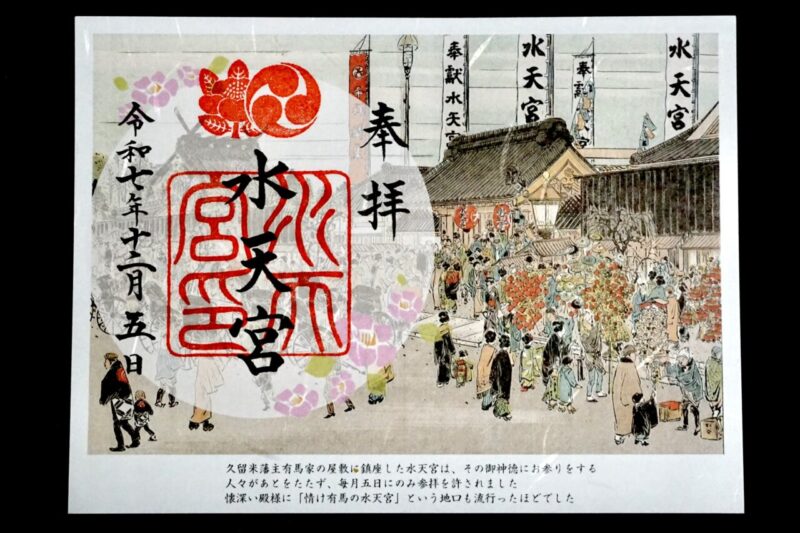 水天宮
水天宮
奉獻水天宮
奉拝
水天宮
水天宮印
令和七年十二月五日
久留米藩主有馬家の屋敷に鎮座した水天宮は、その御神徳にお参りをする
人々があとをたたず、毎月五日にのみ参拝を許されました
懐深い殿様に「情け有馬の水天宮」という地口も流行ったほどでした